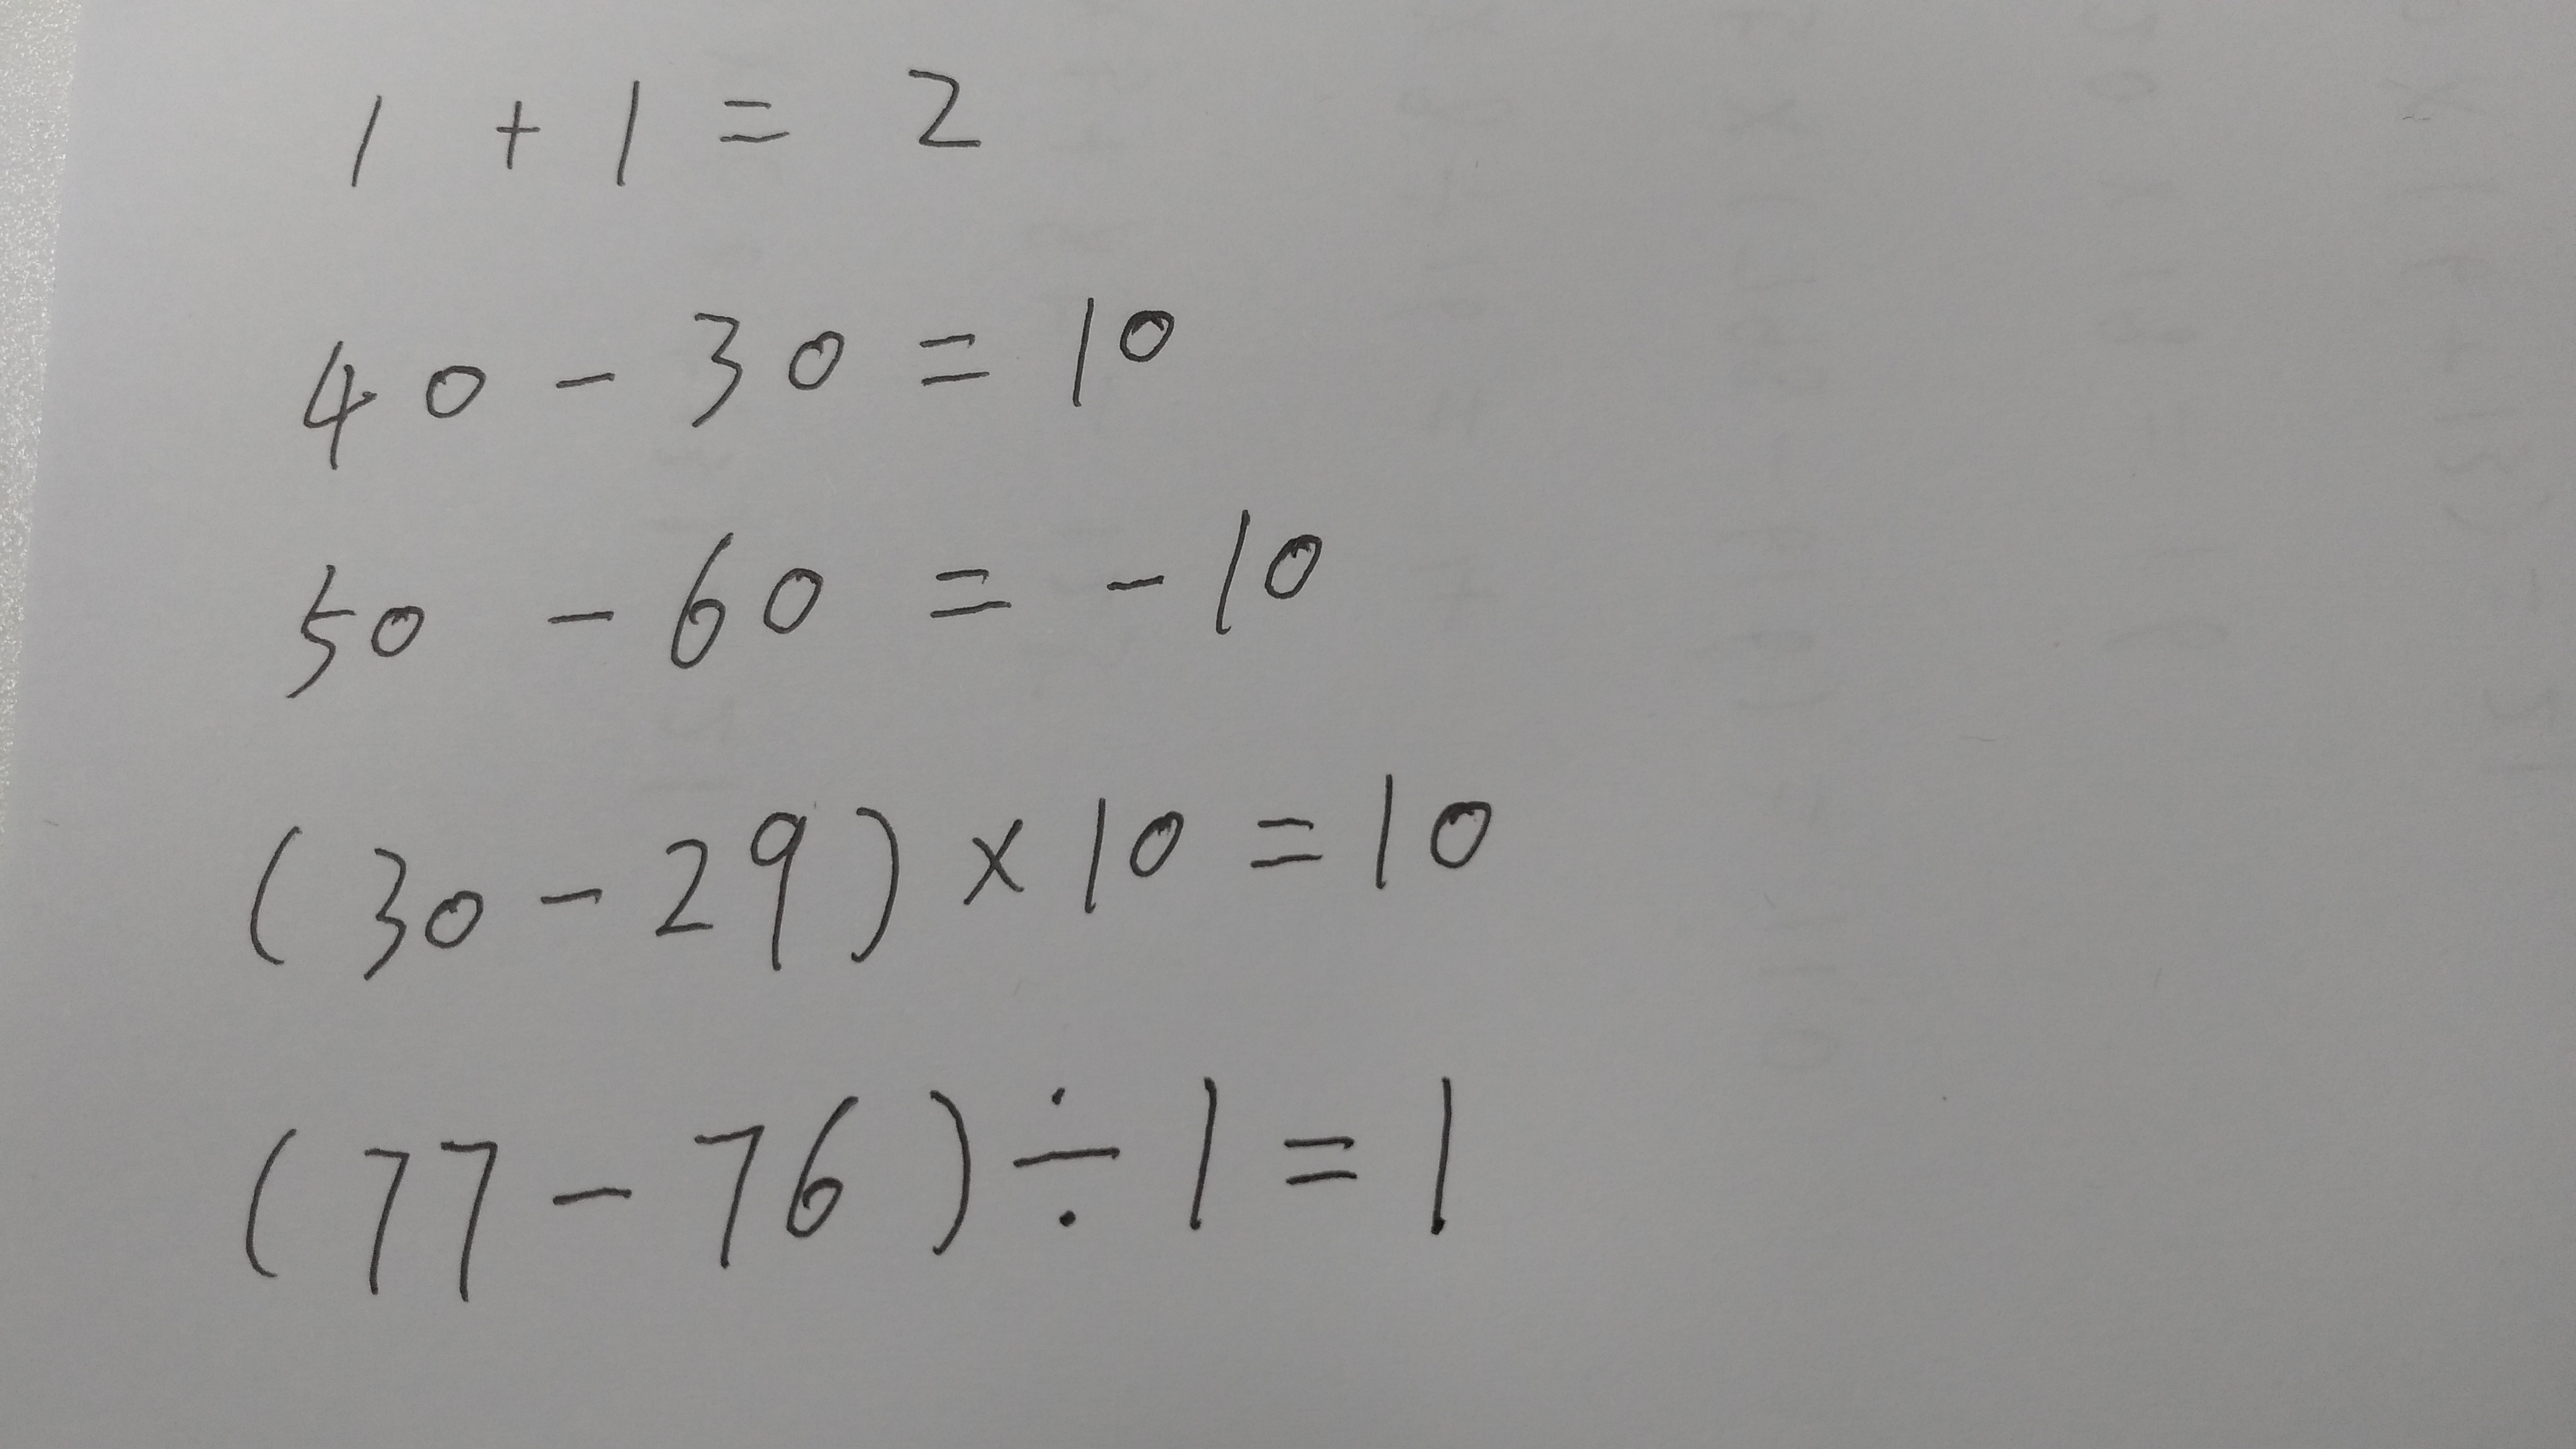 1 + 1 = 2
40 - 30 = 10
50 - 60 = -10
(30 - 29) × 10 = 10
(77 - 76) ÷ 1 = 1